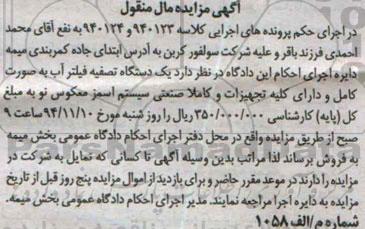 آگهی مزایده مال منقول
در اجرای حکم پرونده های اجرایی کلاسه ۹۴۰۱۲۳ و ۹۴۰۱۲۴ به نفع آقای محمد
احمدی فرزند باقر و علیه شرکت سولفور کربن به آدرس ابتدای جاده کمربندی میمه
دایره اجرای احکام این دادگاه در نظر دارد یک دستگاه تصفیه فیلتر آب به صورت
کامل و دارای کلیه تجهیزات و کاملا صنعتی سیستم اسمز معکوس نو به مبلغ
کل (پایه) کارشناسی ۳۵۰/۰۰۰/۰۰۰ ریال را روز شنبه مورخ ۹۴/۱۱/۱۰ ساعت ۹
صبح از طریق مزایده واقع در محل دفتر اجرای احکام دادگاه عمومی بخش میمه
به فروش برساند لذا مراتب بدین وسیله آگهی تا کسانی که تمایل به شرکت در
مزایده را دارند در موعد مقرر حاضر و برای بازدید از اموال مزایده پنج روز قبل از تاریخ
مزایده به دایره اجرا مراجعه نمایند. مدیر اجرای احکام دادگاه عمومی بخش میمه.
شماره م/الف ۱۰۵۸